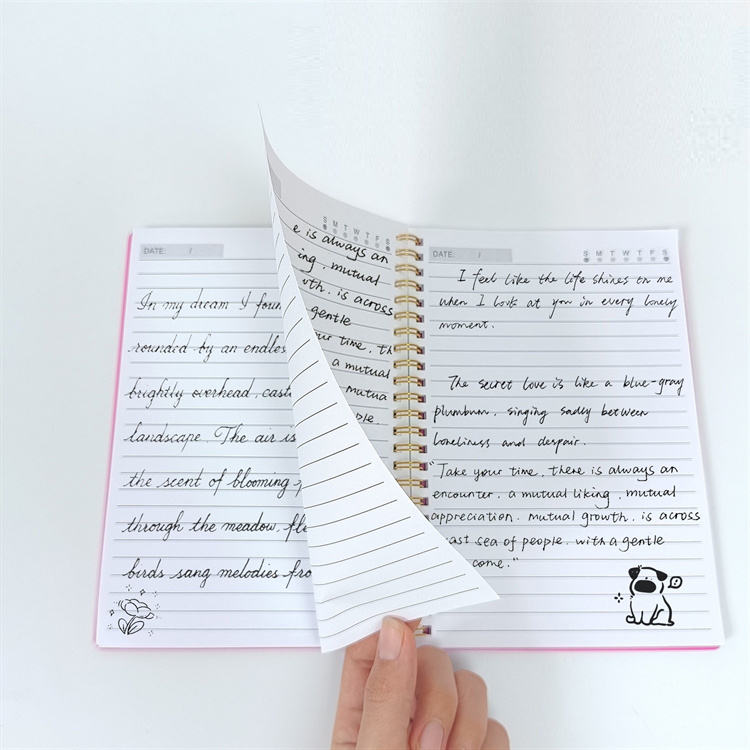 DATE: /
In my dream I foun
rounded by an endles
brightly overhead, cast
landscape. The air is
the scent of blooming
through the meadow, fle
birds sang melodies fro
S M T W T F S
e is always an
ing, mutual
wth, is across
gentle
ur time, th
a mutual
mutua
ple.
DATE: /
S M T W T F S
I feel like the life shines on me
when I look at you in every lonely
moment.
The secret love is like a blue-gray
plumbum, singing sadly between
loneliness and despair.
"Take your time, there is always an
encounter, a mutual liking, mutual
appreciation, mutual growth, is across
ast sea of people, with a gentle
come."